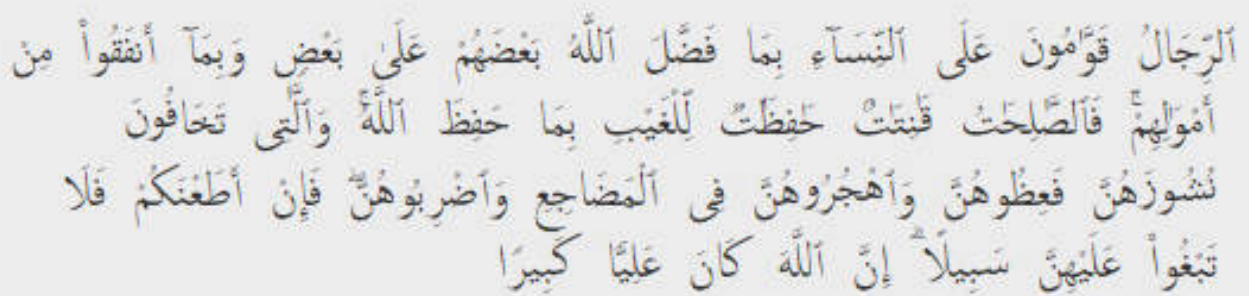 ٱلرِّجَالُ قَوَّٰمُونَ عَلَى ٱلنِّسَآءِ بِمَا فَضَّلَ ٱللَّهُ بَعْضَهُمْ عَلَىٰ بَعْضٍ وَبِمَآ أَنفَقُواْ مِنْ
أَمْوَٰلِهِمْۚ فَٱلصَّٰلِحَٰتُ قَٰنِتَٰتٌ حَٰفِظَٰتٌ لِّلْغَيْبِ بِمَا حَفِظَ ٱللَّهُۚ وَٱلَّٰتِى تَخَافُونَ
نُشُوزَهُنَّ فَعِظُوهُنَّ وَٱهْجُرُوهُنَّ فِى ٱلْمَضَاجِعِ وَٱضْرِبُوهُنَّۖ فَإِنْ أَطَعْنَكُمْ فَلَا
تَبْغُواْ عَلَيْهِنَّ سَبِيلًاۗ إِنَّ ٱللَّهَ كَانَ عَلِيًّا كَبِيرًا